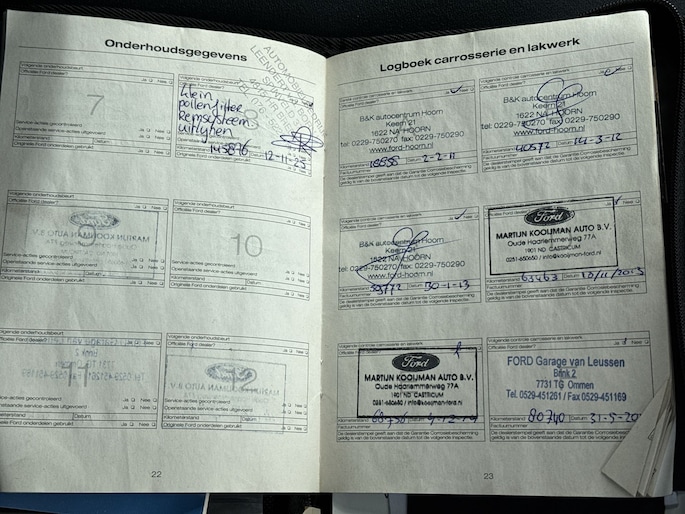 Onderhoudsgegevens
Volgende onderhoudsbeurt
Officiële Ford dealer? Ja Nee
7
Service-acties gecontroleerd Ja Nee
Openstaande service-acties uitgevoerd Ja Nee
Kilometerstand Datum
Originele Ford onderdelen gebruikt Ja Nee
Volgende onderhoudsbeurt
AUTOMOBIEL
klein
pollenfilter
Remsysteem
Openstaande
145876 Datum 12-11-23
Originele Ford onderdelen gebruikt Ja Nee
Volgende onderhoudsbeurt
Officiële Ford dealer? Ja Nee
Service-acties gecontroleerd
Openstaande service-acties uitgevoerd
Kilometerstand
Originele Ford onderdelen gebruikt
Volgende onderhoudsbeurt
Officiële Ford dealer? Ja Nee
10
Service-acties gecontroleerd Ja Nee
Openstaande service-acties uitgevoerd Ja Nee
Kilometerstand Datum
Originele Ford onderdelen gebruikt Ja Nee
Volgende onderhoudsbeurt
Officiële Ford dealer? Ja Nee
Service-acties gecontroleerd Ja Nee
Openstaande service-acties uitgevoerd Ja Nee
Kilometerstand Datum
Originele Ford onderdelen gebruikt Ja Nee
Volgende onderhoudsbeurt
Officiële Ford dealer? Ja Nee
Service-acties gecontroleerd
Openstaande service-acties uitgevoerd Ja Nee
Kilometerstand Datum
Originele Ford onderdelen gebruikt Ja Nee
22
Logboek carrosserie en lakwerk
controle carrosserie en lakwerk
Officiële Ford dealer? Ja Nee
B&K autocentrum Hoorn
Keern 21
1622 NA HOORN
tel: 0229-750270 fax: 0229-750290
www.ford-hoorn.nl
Datum 2-2-11
Factuurnummer
De dealerstempel geeft aan dat de Garantie Corrosiebescherming
geldig is van de bovenstaande datum tot de volgende inspectie.
Volgende controle carrosserie en lakwerk
Officiële Ford dealer? Ja Nee
B&K autocentrum Hoorn
Keern 21
1622 NA HOORN
tel: 0229-750270 fax: 0229-750290
www.ford-hoorn.nl
40572 Datum 14-3-12
Factuurnummer
De dealerstempel geeft aan dat de Garantie Corrosiebescherming
geldig is van de bovenstaande datum tot de volgende inspectie.
Volgende controle carrosserie en lakwerk
Officiële Ford dealer? Ja Nee
B&K autocentrum Hoorn
Keern 21
1622 NA HOORN
tel: 0229-750270 fax: 0229-750290
www.ford-hoorn.nl
Datum 30-1-13
Factuurnummer
De dealerstempel geeft aan dat de Garantie Corrosiebescherming
geldig is van de bovenstaande datum tot de volgende inspectie.
Volgende controle carrosserie en lakwerk
Officiële Ford dealer? Ja Nee
Ford
MARTIJN KOOIJMAN AUTO B.V.
Oude Haarlemmerweg 77A
1901 ND CASTRICUM
0251-650650 / info@kooijman-ford.nl
Kilometerstand 63463 Datum
Factuurnummer
De dealerstempel geeft aan dat de Garantie Corrosiebescherming
geldig is van de bovenstaande datum tot de volgende inspectie.
Volgende controle carrosserie en lakwerk
Officiële Ford dealer? Ja Nee
Ford
MARTIJN KOOIJMAN AUTO B.V.
Oude Haarlemmerweg 77A
1901 ND CASTRICUM
0251-650650 / info@kooijman-ford.nl
Kilometerstand Datum
Factuurnummer
De dealerstempel geeft aan dat de Garantie Corrosiebescherming
geldig is van de bovenstaande datum tot de volgende inspectie.
Volgende controle carrosserie en lakwerk
Officiële Ford dealer? Ja Nee
FORD Garage van Leussen
Brink 2
7731 TG Ommen
Tel. 0529-451261 / Fax 0529-451169
Kilometerstand 80740 Datum 31-5-20
Factuurnummer
De dealerstempel geeft aan dat de Garantie
geldig is van de bovenstaande datum tot de volgende
23